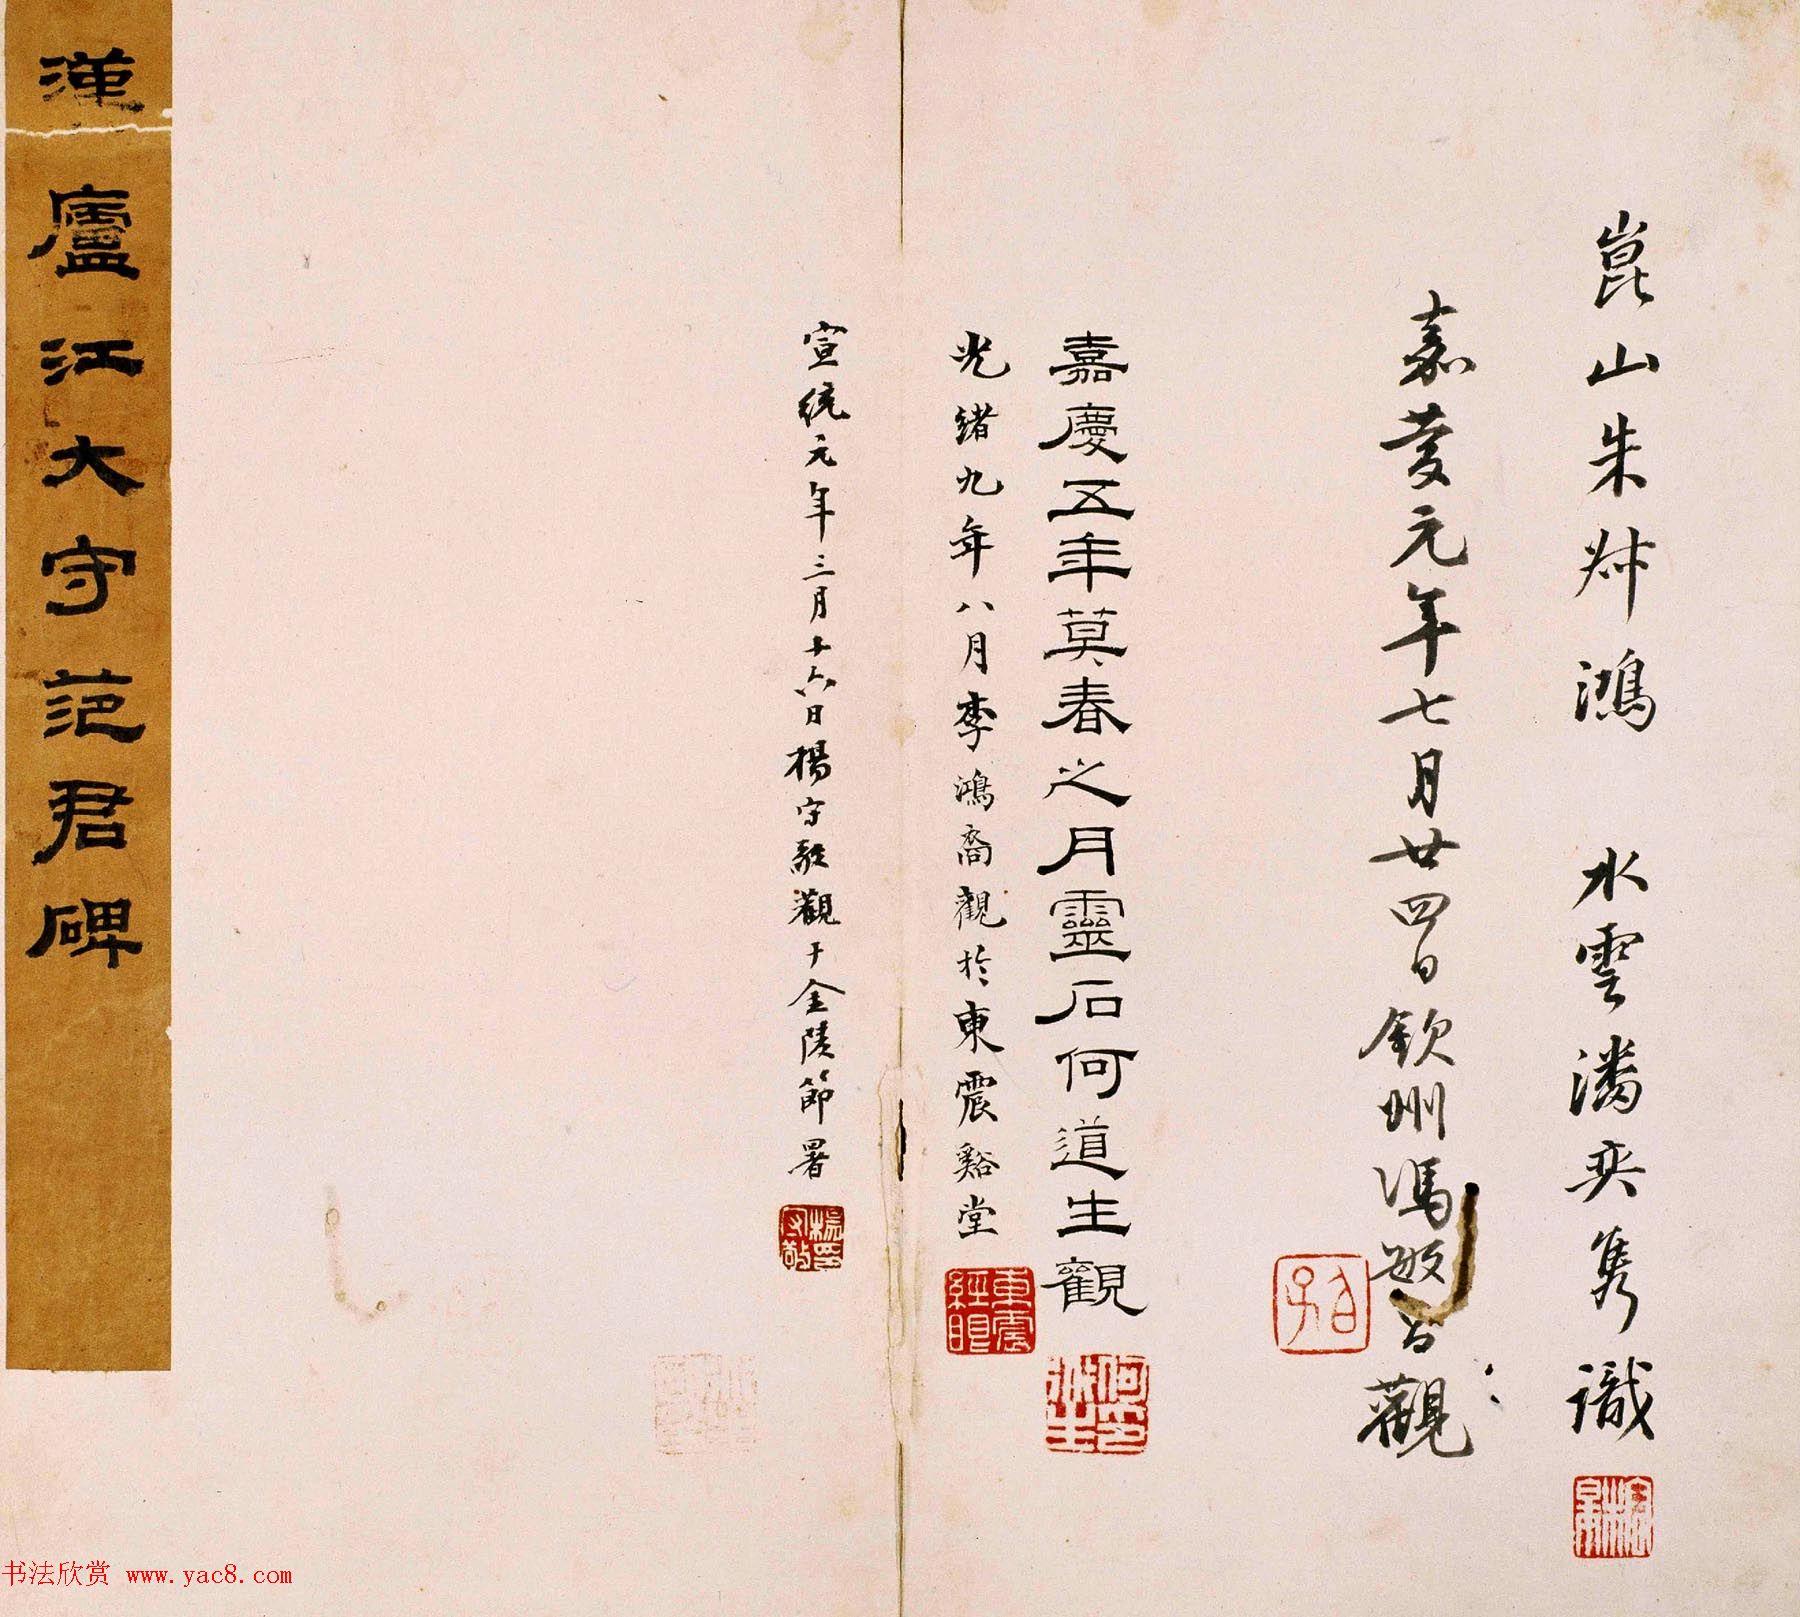 崑山朱紱鴻 水雲潘奕隽識
嘉慶元年七月廿四日欽州馮敏昌觀
嘉慶五年莫春之月靈石何道生觀
光緒九年八月李鴻裔觀於東震谿堂
宣統元年三月十六日楊守敬觀于金陵節署
漢廬江大守范君碑
何印道生
楊印守敬
书法欣赏 www.yac8.com